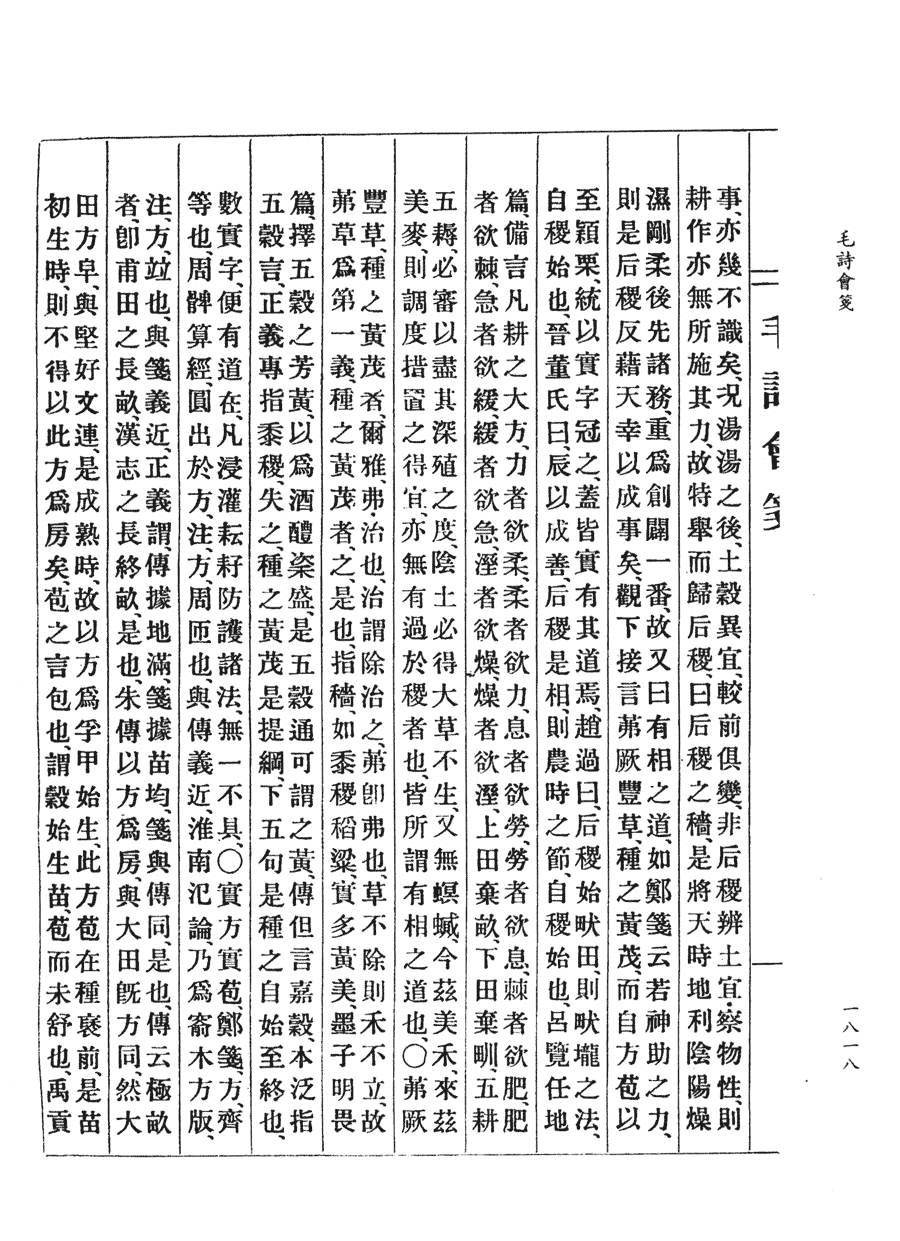 毛詩會箋
一八一八
毛詩會箋
事、亦幾不識矣、况湯湯之後、土穀異宜、較前俱變、非后稷辨土宜、察物性、則
耕作亦無所施其力、故特舉而歸后稷、曰后稷之穡、是將天時地利陰陽燥
濕剛柔後先諸務、重爲創闢一番、故又曰有相之道、如鄭箋云若神助之力、
則是后稷反藉天幸以成事矣、觀下接言茀厥豐草、種之黃茂、而自方苞以
至穎栗、統以實字冠之、蓋皆實有其道焉、趙過曰、后稷始畎田、則畎壠之法、
自稷始也、晉董氏曰、辰以成善、后稷是相、則農時之節、自稷始也、呂覽任地
篇、備言凡耕之大方、力者欲柔、柔者欲力、息者欲勞、勞者欲息、棘者欲肥、肥
者欲棘、急者欲緩、緩者欲急、溼者欲燥、燥者欲溼、上田棄畝、下田棄甽、五耕
五耨、必審以盡其深殖之度、陰土必得大草不生、又無螟蜮、今茲美禾、來茲
美麥、則調度措置之得宜、亦無有過於稷者也、皆所謂有相之道也、○茀厥
豐草、種之黃茂者、爾雅、弗、治也、治謂除治之、茀卽弗也、草不除則禾不立、故
茀草、爲第一義、種之黃茂者、之、是也、指穡、如黍稷稻粱、實多黃美、墨子明畏
篇、擇五穀之芳黃、以爲酒醴粢盛、是五穀通可謂之黃、傳但言嘉穀、本泛指
五穀言、正義專指黍稷、失之、種之黃茂是提綱、下五句是種之自始至終也、
數實字、便有道在、凡浸灌耘耔防護諸法、無一不具、○實方實苞、鄭箋、方、齊
等也、周髀算經、圓出於方、注、方、周匝也、與傳義近、淮南氾論、乃爲窬木方版、
注、方、竝也、與箋義近、正義謂、傳據地滿、箋據苗均、箋與傳同、是也、傳云極畝
者、卽甫田之長畝、漢志之長終畝、是也、朱傳以方爲房、與大田旣方同、然大
田方皁、與堅好文連、是成熟時、故以方爲孚甲始生、此方苞在種褎前、是苗
初生時、則不得以此方爲房矣、苞之言包也、謂穀始生苗、苞而未舒也、禹貢